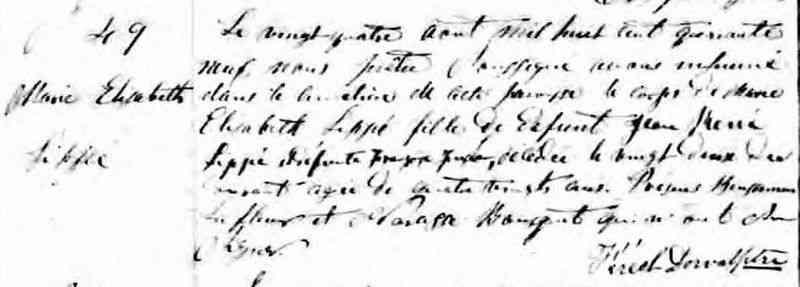 49
Marie Elisabeth
Lippé
Le vingt quatre aout mil huit cent quarante
neuf, nous prêtre soussigné avons inhumé
dans le cimetière de cette paroisse le corps de Marie
Elisabeth Lippé fille de defunt Jean Pierre
Lippé décédée le vingt deux du
courant agée de quatre vingts ans. Présens
Lafleur et Bousquet qui n'ont su
signer.
ptre